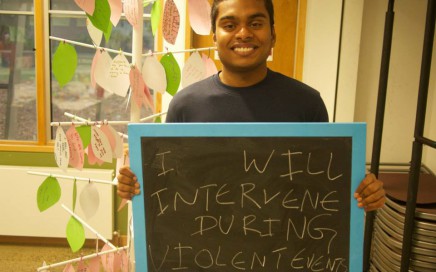 I WILL
INTERVENE
DURING
VIOLENT EVENT